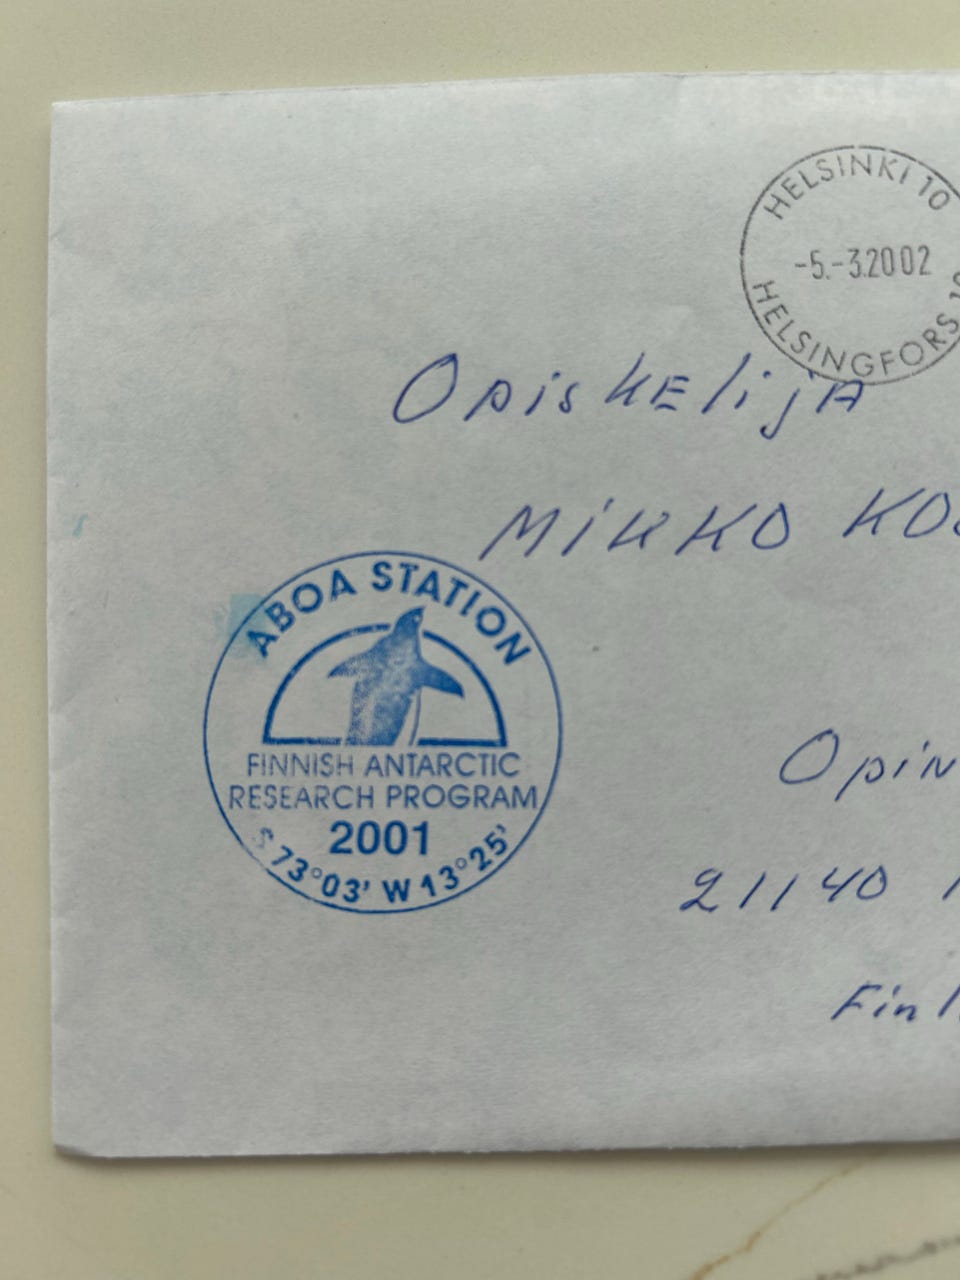 HELSINKI 10
-5.-3.2002
HELSINGFORS 10
Opiskelija
MIKKO
ABOA STATION
FINNISH ANTARCTIC
RESEARCH PROGRAM
2001
S 73°03' W 13°25'
21140